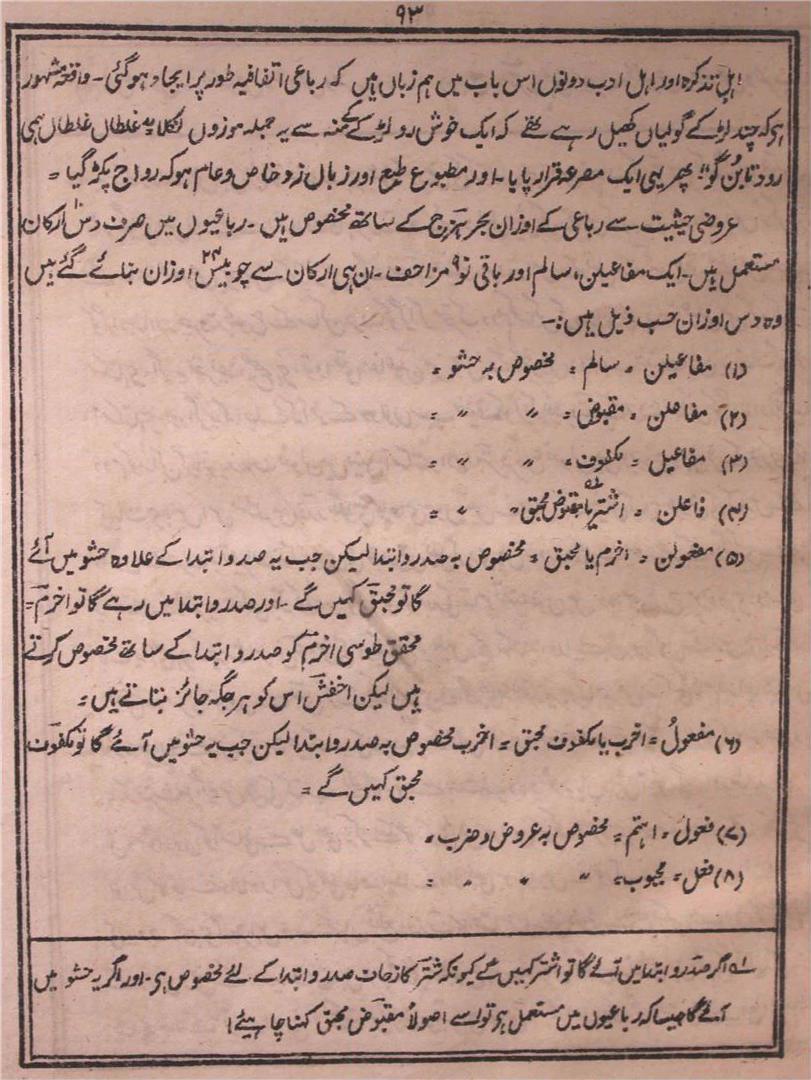 ۹۳
اہلِ تذکرہ اور اہل ادب دونوں اس باب میں ہم زباں ہیں کہ رباعی اتفاقیہ طور پر ایجاد ہوگئی۔ واقعہ مشہور
ہی کہ چند لڑکے گولیاں کھیل رہے تھے کہ ایک خوش رو لڑکے کے منہ سے یہ جملہ موزوں نکلا "غلطاں غلطاں ہمی
رود تا بُن گو"! پھر یہی ایک مصرعہ قرار پایا۔ اور مطبوع طبع اور زباں زدِ خاص و عام ہو کہ رواج پکڑ گیا =
عروضی حیثیت سے رباعی کے اوزان بحر ہزج کے ساتھ مخصوص ہیں۔ رباعیوں میں صرف دس۱۰ ارکان
مستعمل ہیں۔ ایک مفاعیلن، سالم اور باقی نو۹ مزاحف۔ ان ہی ارکان سے چوبیس۲۴ اوزان بنائے گئے ہیں
وہ دس اوزان حسب ذیل ہیں:۔
(۱) مفاعیلن = سالم = مخصوص بہ حشو =
(۲) مفاعلن = مقبوض = 〃 〃 =
(۳) مفاعیل = مکفوف = 〃 〃 =
(۴) فاعلن = اشتر یا مقبوض محبق لہ = 〃 〃 =
(۵) مفعولن = اخرم یا محبق = مخصوص بہ صدر و ابتدا لیکن جب یہ صدر و ابتدا کے علاوہ حشو میں آئے
گا تو محبق کہیں گے۔ اور صدر و ابتدا میں رہے گا تو اخرم =
محقق طوسی اخرم کو صدر و ابتدا کے ساتھ مخصوص کرتے
ہیں لیکن اخفش اس کو ہر جگہ جائز بتاتے ہیں =
(۶) مفعولُ = اخرب یا مکفوف محبق = اخرب مخصوص بہ صدر و ابتدا لیکن جب یہ حشو میں آئے گا تو مکفوف
محبق کہیں گے =
(۷) فعول = اہتم = مخصوص بہ عروض و ضرب =
(۸) فعل = مجبوب = 〃 〃 〃 =
لہ اگر صدر و ابتدا میں آئے گا تو اشتر کہیں گے کیونکہ شتر کا زحاف صدر و ابتدا کے لئے مخصوص ہی۔ اور اگر یہ حشو میں
آئے گا جیسا کہ رباعیوں میں مستعمل ہی تو اسے اصولاً مقبوض محبق کہنا چاہیئے!